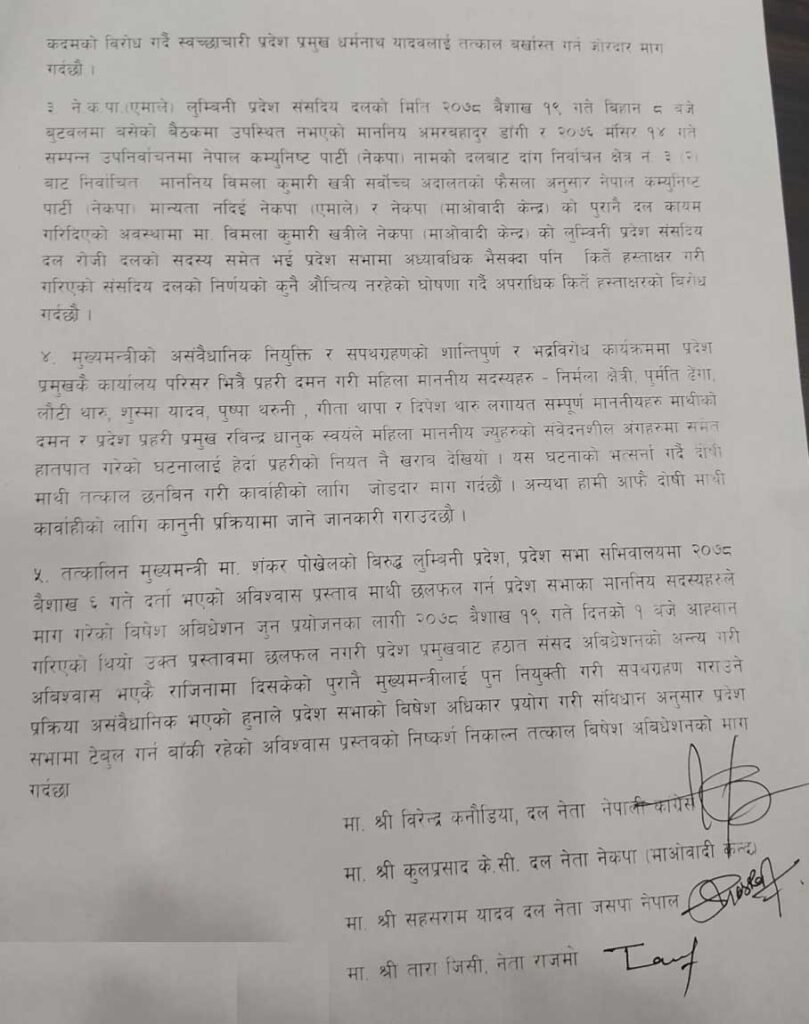 कदमको बिरोध गर्दै स्वच्छाचारी प्रदेश प्रमुख धर्मनाथ यादवलाई तत्काल बर्खास्त गर्न जोरदार माग
गर्दछौ ।
३. ने.क.पा.(एमाले) लुम्बिनी प्रदेश संसदिय दलको मिति २०७८ बैशाख १९ गते बिहान ८ बजे
बुटवलमा बसेको बैठकमा उपस्थित नभएको माननिय अमरबहादुर डाँगी र २०७६ मंसिर १४ गते
सम्पन्न उपनिर्वाचनमा नेपाल कम्युनिष्ट पार्टी (नेकपा) नामको दलबाट दांग निर्वाचन क्षेत्र नं. ३ (२)
बाट निर्वाचित माननिय विमला कुमारी खत्री सर्वोच्च अदालतको फैसला अनुसार नेपाल कम्युनिष्ट
पार्टी (नेकपा) मान्यता नदिई नेकपा (एमाले) र नेकपा (माओवादी केन्द्र) को पुरानै दल कायम
गरिदिएको अवस्थामा मा. विमला कुमारी खत्रीले नेकपा (माओवादी केन्द्र) को लुम्बिनी प्रदेश संसदिय
दल रोजी दलको सदस्य समेत भई प्रदेश सभामा अध्यावधिक भैसक्दा पनि किर्ते हस्ताक्षर गरी
गरिएको संसदिय दलको निर्णयको कुनै औचित्य नरहेको घोषणा गर्दै अपराधिक किर्ते हस्ताक्षरको बिरोध
गर्दछौ ।
४. मुख्यमन्त्रीको असंवैधानिक नियुक्ति र सपथग्रहणको शान्तिपुर्ण र भद्रविरोध कार्यक्रममा प्रदेश
प्रमुखकै कार्यालय परिसर भित्रै प्रहरी दमन गरी महिला माननीय सदस्यहरु - निर्मला क्षेत्री, पुर्मति ढेंगा,
लौटी थारु, शुस्मा यादव, पुष्पा थरुनी , गीता थापा र दिपेश थारु लगायत सम्पूर्ण माननीयहरु माथीको
दमन र प्रदेश प्रहरी प्रमुख रविन्द्र धानुक स्वयंले महिला माननीय ज्युहरुको संवेदनशील अंगहरुमा समेत
हातपात गरेको घटनालाई हेर्दा प्रहरीको नियत नै खराब देखियो । यस घटनाको भर्त्सर्ना गर्दै दोषी
माथी तत्काल छनबिन गरी कार्वाहीको लागि जोडदार माग गर्दछौं । अन्यथा हामी आफै दोषी माथी
कार्वाहीको लागि कानुनी प्रक्रियामा जाने जानकारी गराउदछौ ।
५. तत्कालिन मुख्यमन्त्री मा. शंकर पोखेलको विरुद्ध लुम्बिनी प्रदेश, प्रदेश सभा सभिवालयमा २०७८
बैशाख ६ गते दर्ता भएको अविश्वास प्रस्ताव माथी छलफल गर्न प्रदेश सभाका माननिय सदस्यहरुले
माग गरेको बिषेश अबिधेशन जुन प्रयोजनका लागी २०७८ बैशाख १९ गते दिनको १ बजे आह्वान
गरिएको थियो उक्त प्रस्तावमा छलफल नगरी प्रदेश प्रमुखबाट हठात संसद अबिधेशनको अन्त्य गरी
अबिश्वास भएकै राजिनामा दिसकेको पुरानै मुख्यमन्त्रीलाई पुन नियुक्ती गरी सपथग्रहण गराउने
प्रक्रिया असंवैधानिक भएको हुनाले प्रदेश सभाको बिषेश अधिकार प्रयोग गरी संविधान अनुसार प्रदेश
सभामा टेबुल गर्न बाँकी रहेको अविश्वास प्रस्तवको निष्कर्श निकाल्न तत्काल बिषेश अबिधेशनको माग
गर्दछौ
मा. श्री विरेन्द्र कनौडिया, दल नेता नेपाली काग्रेस
मा. श्री कुलप्रसाद के.सी. दल नेता नेकपा (माओवादी केन्द्र)
मा. श्री सहसराम यादव दल नेता जसपा नेपाल
मा. श्री तारा जिसी, नेता राजमो